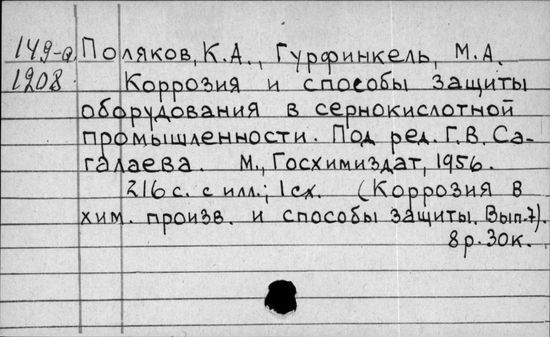 149-а Поляков, К.А., Гурфинкель, М.А.
1908 Коррозия и способы защиты
оборудования в сернокислотной
промышленности. Под ред. Г.В. Са-
галаева. М., Госхимиздат, 1956.
216 с. с илл.; 1 сх. (Коррозия в
хим. произв. и способы защиты. Вып.7).
8р.30к.